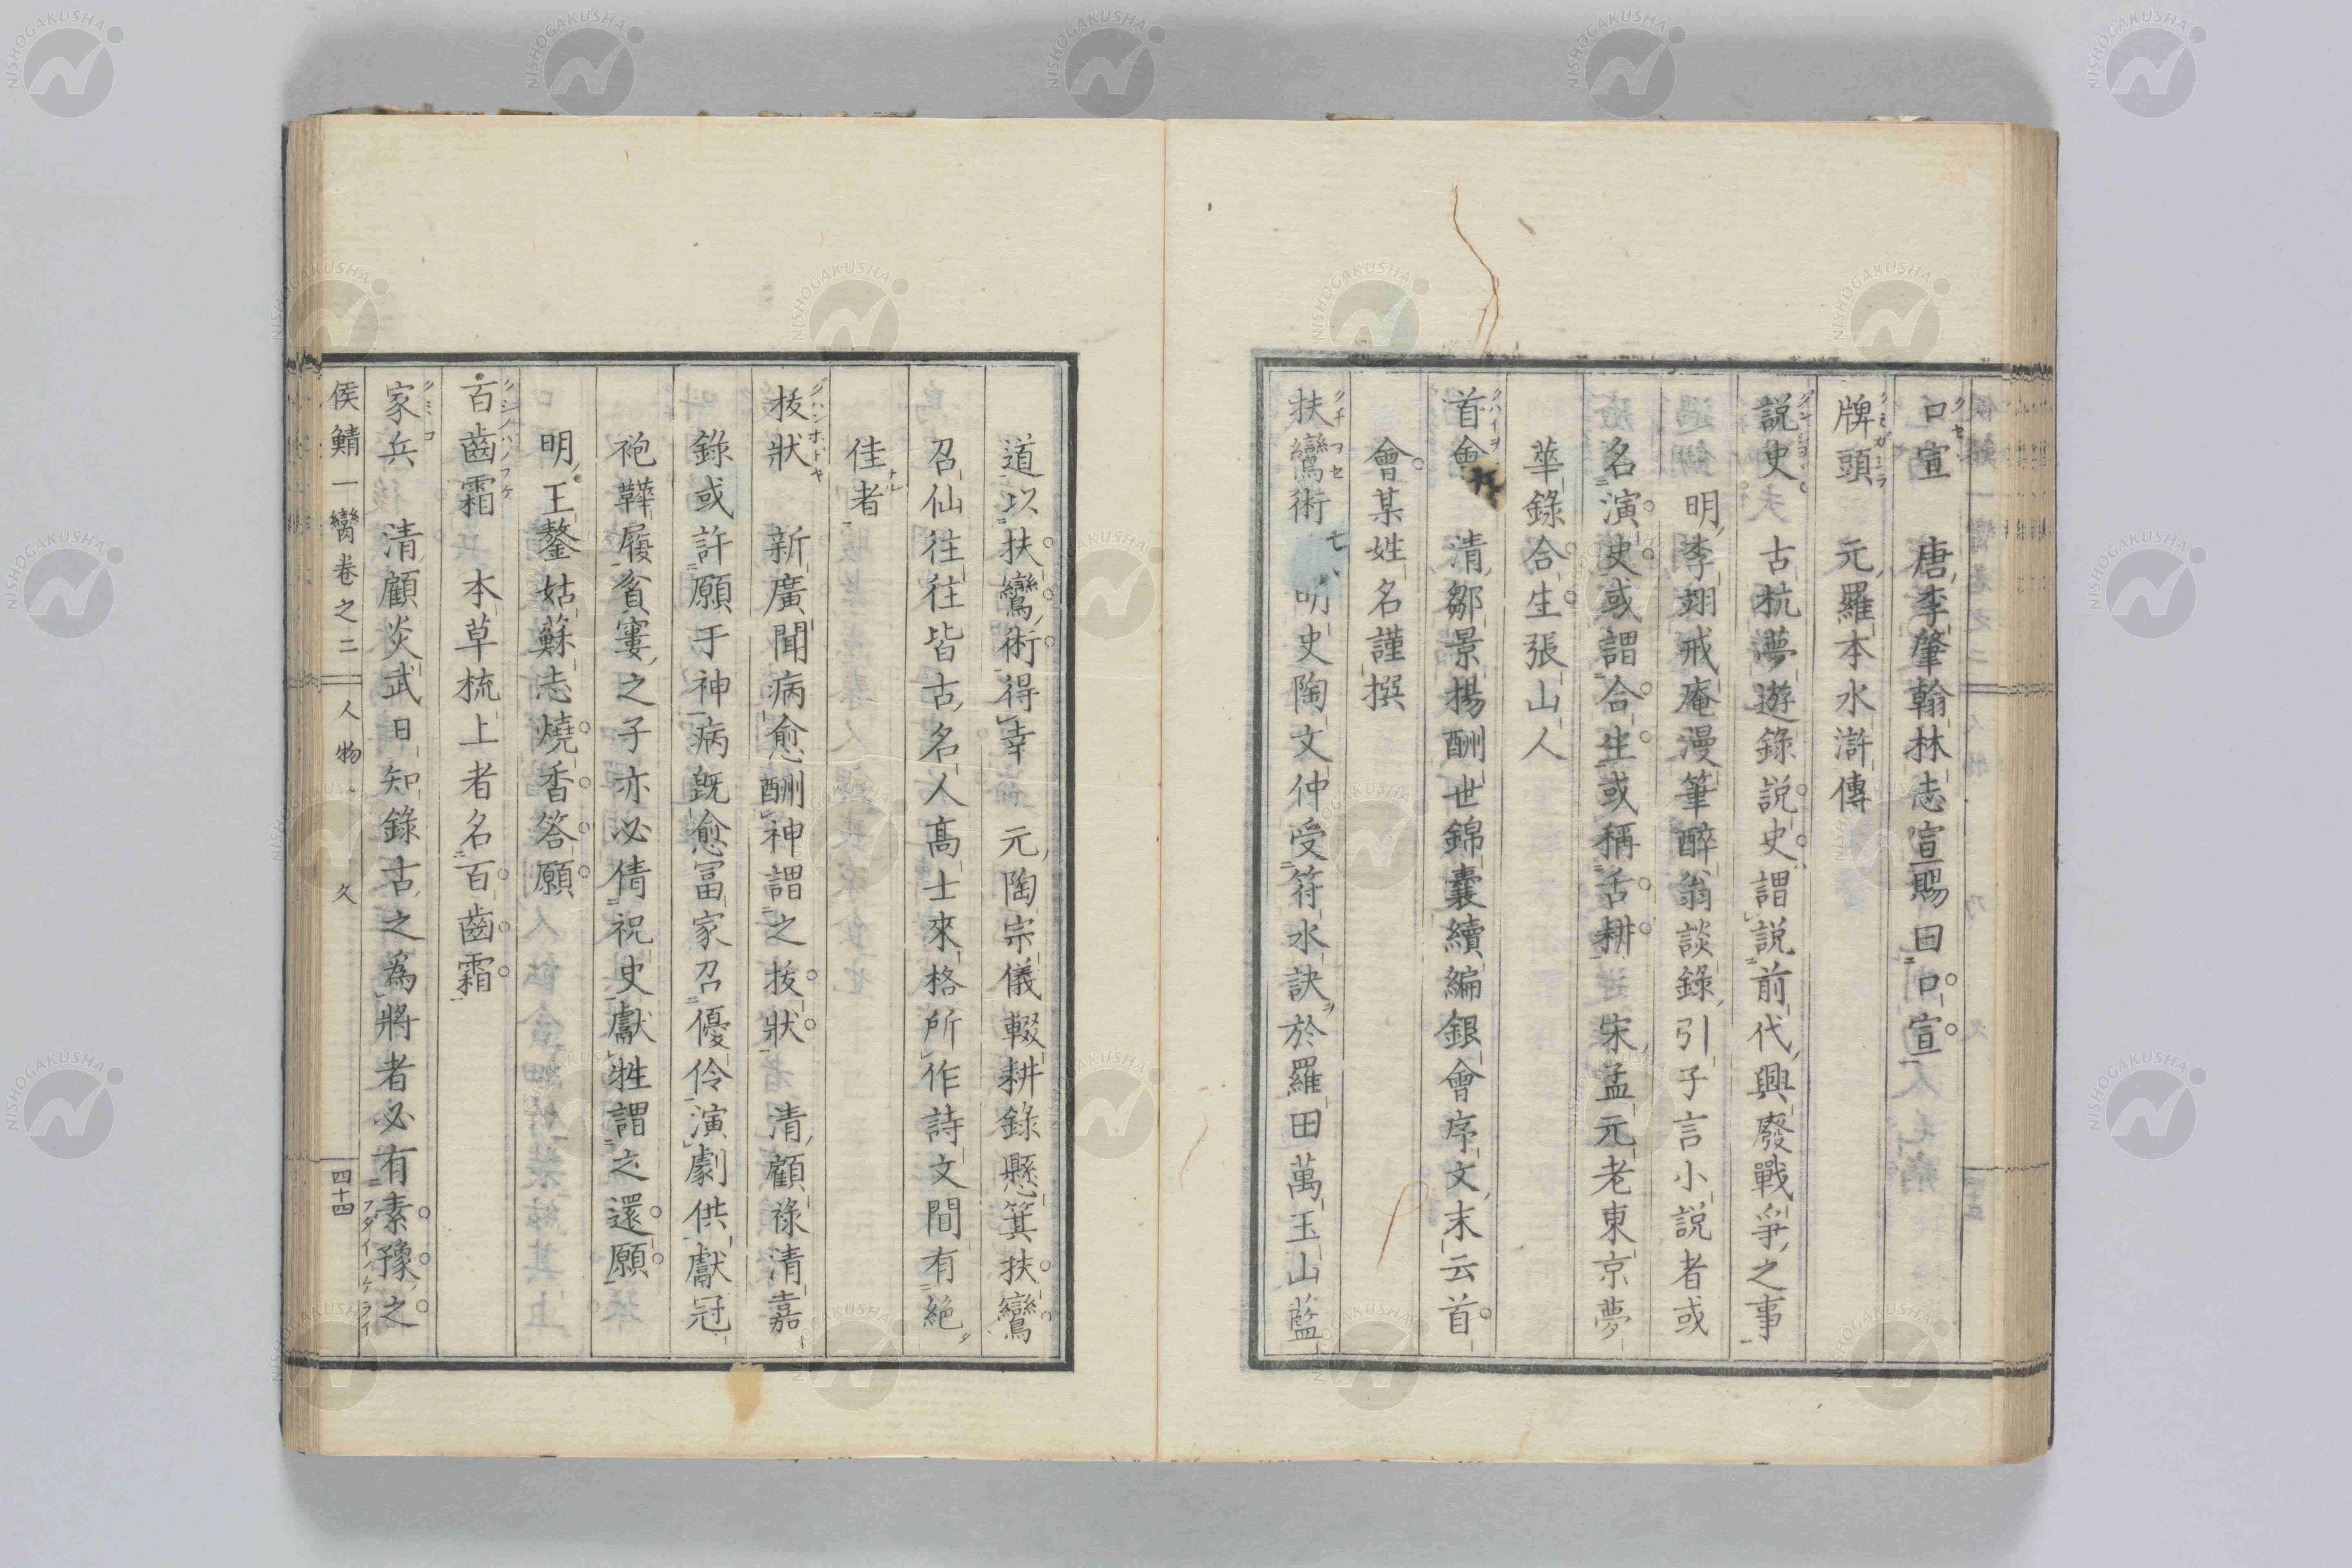 口宣　唐李肇翰林志宣賜曰口宣
牌頭　元羅本水滸傳
說史　古杭夢遊錄說史謂說前代興廢戰爭之事
明李翊戒庵漫筆醉翁談錄引子言小說者或
名演史或謂合生或稱舌耕　宋孟元老東京夢
華錄合生張山人
首會　清鄒景揚酬世錦囊續編銀會序文末云首
會某姓名謹撰
扶鸞術　明史陶文仲受符水訣於羅田萬玉山藍
道以扶鸞術得幸　元陶宗儀輟耕錄懸箕扶鸞
召仙往往皆古名人高士來格所作詩文間有絕
佳者
拔狀　新廣聞病愈酬神謂之拔狀　清顧祿清嘉
錄或許願于神病既愈冨家召優伶演劇供獻冠
袍鞾履貧窶之子亦必倩祝史獻牲謂之還願
明王鏊姑蘇志燒香答願
百齒霜　本草梳上者名百齒霜
家兵　清顧炎武日知錄古之為將者必有素豫之
侯鯖一臠卷之二　人物　久　四十四
NISHOGAKUSHA